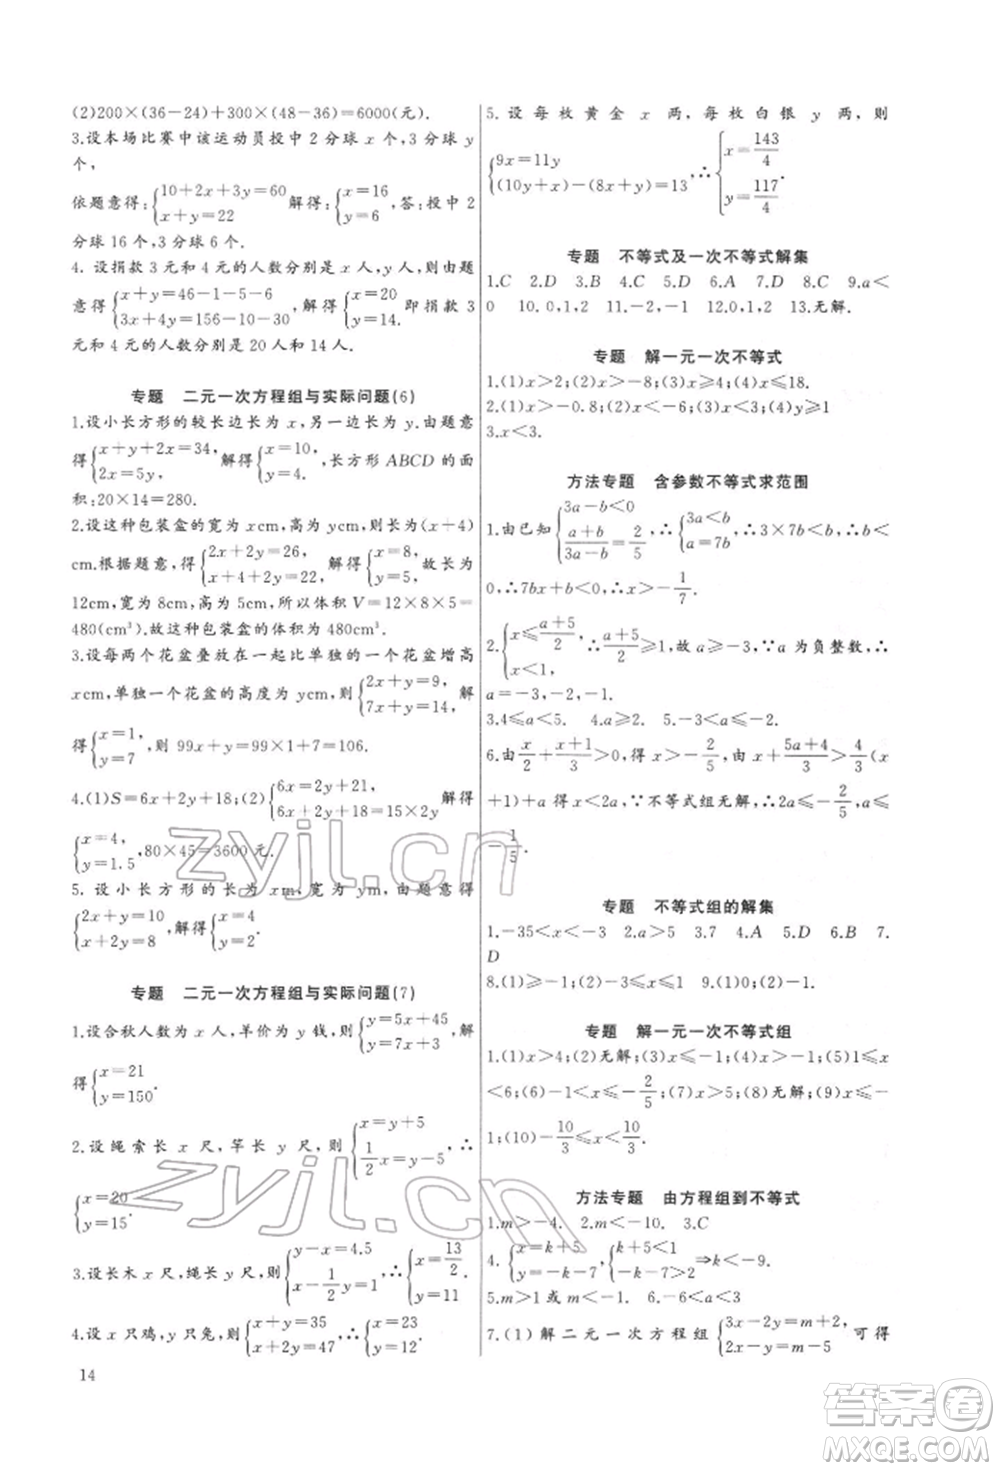 (2)200×(36−24)+300×(48−36)=6000(元).
3.设本场比赛中该运动员投中 2 分球 x 个,3 分球 y
个,
依题意得:{10+2x+3y=60 x+y=22 解得:{x=16 y=6,答:投中 2
分球 16 个,3 分球 6 个.
4. 设捐款 3 元和 4 元的人数分别是 x 人,y 人,则由题
意得{x+y=46−1−5−6 3x+4y=156−10−30,解得{x=20 y=14. 即捐款 3
元和 4 元的人数分别是 20 人和 14 人.
专题 二元一次方程组与实际问题(6)
1.设小长方形的较长边长为 x,另一边长为 y.由题意
得{x+y+2x=34, 2x=5y, 解得{x=10, y=4. 长方形 ABCD 的面
积:20×14=280.
2.设这种包装盒的宽为 xcm,高为 ycm,则长为(x+4)
cm.根据题意,得{2x+2y=26, x+4+2y=22, 解得{x=8, y=5. 故长为
12cm,宽为 8cm,高为 5cm,所以体积 V=12×8×5=
480(cm³).故这种包装盒的体积为 480cm³.
3.设每两个花盆叠放在一起比单独的一个花盆增高
xcm,单独一个花盆的高度为 ycm,则{2x+y=9, 7x+y=14. 解
得{x=1, y=7 ,则 99x+y=99×1+7=106.
4.(1)S=6x+2y+18;(2){6x−2y=21 6x+2y+18=15×2y 解得
{x=4, y=1.5 ,80×45=3600 元.
5. 设小长方形的长为 xm,宽为 ym,由题意得
{2x+y=10 x+2y=8 ,解得{x=4 y=2.
专题 二元一次方程组与实际问题(7)
1.设合秋人数为 x 人,羊价为 y 钱,则{y=5x+45 y=7x+3 ,解
得{x=21 y=150.
2.设绳索长 x 尺,竿长 y 尺,则{x=y+5 1/2x=y−5, ∴
{x=20 y=15.
3.设长木 x 尺,绳长 y 尺,则{y−x=4.5 x−1/2y=1, ∴{x=13/2 y=11.
4.设 x 只鸡,y 只兔,则{x+y=35 2x+4y=47 ∴{x=23 y=12.
14
5. 设每枚黄金 x 两,每枚白银 y 两,则
{9x=11y (10y+x)−(8x+y)=13,∴{x=143/4 y=117/4.
专题 不等式及一次不等式解集
1.C 2.D 3.B 4.A 5.D 6.A 7.D 8.C 9.a<
0 10.0,1,2 11.−2,−1 12.0,1,2 13.无解.
专题 解一元一次不等式
1.(1)x>2;(2)x>−8;(3)x≥4;(4)x≤18.
2.(1)x>−0.8;(2)x<−6;(3)x>−2;(4)y≥1
3.x<3.
方法专题 含参数不等式求范围
1.由已知{3a−b<0 (a+b)/(3a−b)=2/5,∴{3a<b a=7b,∴3×7b<b,∴b<
0,∴7bx+b<0;∴x>−1/7.
2.{x≤(a+5)/2 x<1, ∴(a+5)/2≥1,故 a≥−3,∵a 为负整数,∴
a=−3,−2,−1.
3.4≤a<5. 4.a≥2 5.−3<a≤−2.
6.由x/2+(x+1)/3>0,得 x>−2/5,由 x+(5a+4)/3>4/3(x
+1)+a 得 x<2a,∵不等式组无解,∴2a≤−2/5,a≤
−1/5.
专题 不等式组的解集
1.−35<x<−3 2.a>5 3.7 4.A 5.D 6.B 7.
D
8.(1)x≥−1,(2)−3≤x≤1 (3)−1≤x<0;(2)−1.
专题 解一元一次不等式组
1.(1)x>4;(2)无解;(3)x≤−1;(4)x>−2;(5)1≤x
<6;(6)−1≤x<−2/5;(7)x>5;(8)无解;(9)x≤−
1;(10)−10/3≤x<10/3.
方法专题 由方程组到不等式
1.m>−4. 2.m<−10. 3.C
4.{x=k+5 y=−k−7,{x=k+5<0 y=−k−7>2 ⇒k<−9.
5.m>1 或 m<−1. 6.−6<a<3
7.(1)解二元一次方程组{3x−2y=m+2 2x−y=m−5 可得
zyjl.cn
zyjl.cn
答案卷
MXQE.COM